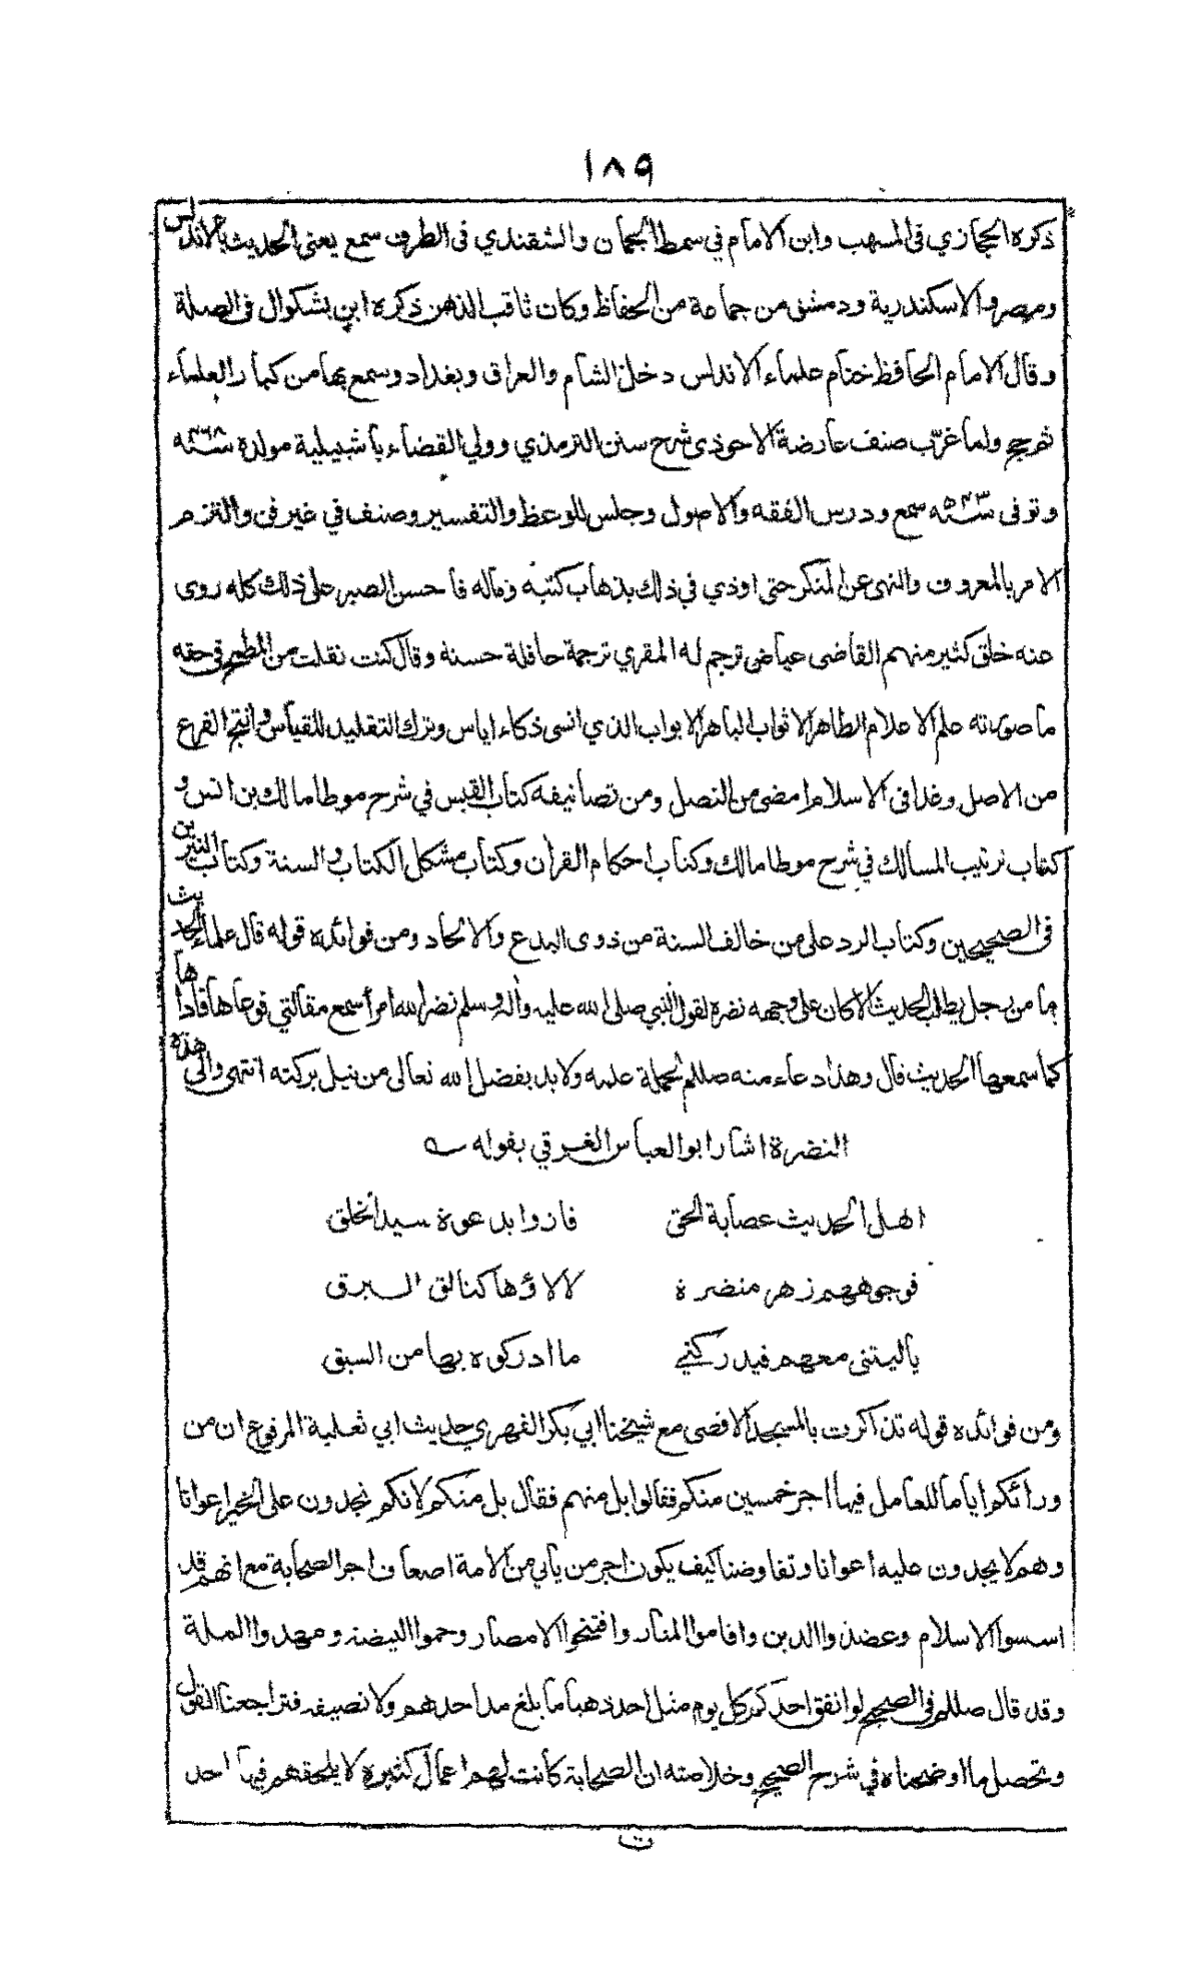 ١٨٩
ذكره الحجازي في المسهب وابن الامام في سمط الجمان والشقندي في الطرف سمع يعنى الحديث بالاندلس
ومصر والاسكندرية ودمشق من جماعة من الحفاظ وكان ثاقب الذهن ذكره ابن بشكوال في الصلة
وقال الامام الحافظ ختام علماء الاندلس دخل الشام والعراق وبغداد وسمع بها من كبار العلماء
ثم حج ولما غرّب صنف عارضة الاحوذي شرح سنن الترمذي وولي القضاء باشبيلية مولده سنة ٤٦٨
وتوفى سنة ٥٤٣ سمع ودرس الفقه والاصول وجلس للوعظ والتفسير وصنف في غير فن والتزم
الامر بالمعروف والنهي عن المنكر حتى اوذي في ذلك بذهاب كتبه وماله فاحسن الصبر على ذلك كله روى
عنه خلق كثير منهم القاضى عياض ترجم له المقري ترجمة حافلة حسنة وقال كنت نقلت من المطمح في حقه
ما صورته علم الاعلام الطاهر الاثواب الباهر الابواب الذي انسى ذكاء اياس وترك التقليد للقياس وانتج الفرع
من الاصل وغدا في الاسلام امضى من النصل ومن تصانيفه كتاب القبس في شرح موطا مالك بن انس و
كتاب ترتيب المسالك في شرح موطا مالك وكتاب احكام القران وكتاب مشكل الكتاب والسنة وكتاب النيرين
في الصحيحين وكتاب الرد على من خالف السنة من ذوى البدع والالحاد ومن فوائده قوله قال علماء الحديث
ما من رجل يطلب الحديث الا كان على وجهه نضرة لقول النبي صلى الله عليه وآله وسلم نضر الله امرأ سمع مقالتي فوعاها فاداها
كما سمعها الحديث قال وهذا دعاء منه صللم لحملة علمه ولا بد بفضل الله تعالى من نيل بركته انتهى والى هذه
النضرة اشار ابو العباس الغرقي بقوله
اهل الحديث عصابة الحق فازوا بدعوة سيد الخلق
فوجوههم زهر منضرة لالاؤها كتالق البرق
ياليتنى معهم فيدركني ما ادركوه بها من السبق
ومن فوائده قوله تذاكرت بالمسجد الاقصى مع شيخنا ابي بكر الفهري حديث ابي ثعلبة المرفوع ان من
ورائكم اياما للعامل فيها اجر خمسين منكم فقالوا بل منهم فقال بل منكم لانكم تجدون على الخير اعوانا
وهم لا يجدون عليه اعوانا وتفاوضنا كيف يكون اجر من ياتي من الامة اضعاف اجر الصحابة مع انهم قد
اسسوا الاسلام وعضدوا الدين واقاموا المنار وافتتحوا الامصار وحموا البيضة ومهدوا الملة
وقد قال صللم في الصحيح لو انفق احدكم كل يوم مثل احد ذهبا ما بلغ مد احدهم ولا نصيفه فتراجعنا القول
وتحصل ما اوضحناه في شرح الصحيح وخلاصته ان الصحابة كانت لهم اعمال كثيرة لا يلحقهم فيها احد
ت